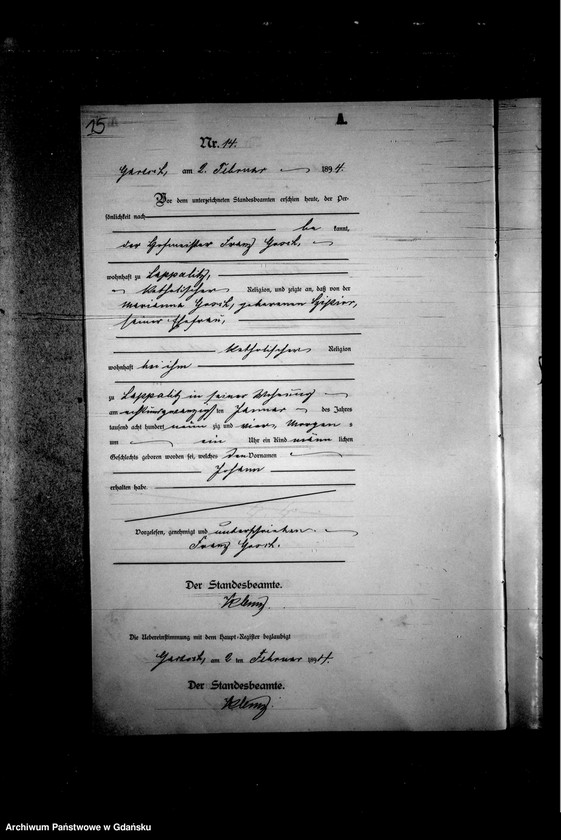 15
A.
Nr. 14.
am 2. Februar 1894.
Vor dem unterzeichneten Standesbeamten erschien heute, der Per-
sönlichkeit nach
be kannt,
der Hofmeister Franz
wohnhaft zu Leppalitz,
katholischer Religion, und zeigte an, daß von der
Marianna geborenen
seiner Ehefrau,
katholischer Religion
wohnhaft bei ihm
zu Leppalitz in seiner Wohnung
am ten Januar des Jahres
tausend acht hundert neun zig und vier, Morgens
um ein Uhr ein Kind männ lichen
Geschlechts geboren worden sei, welches den Vornamen
Johann
erhalten habe.
Vorgelesen, genehmigt und unterschrieben
Franz
Der Standesbeamte.
Die Uebereinstimmung mit dem Haupt-Register beglaubigt
am 2 ten Februar 1894.
Der Standesbeamte.
Archiwum Państwowe w Gdańsku